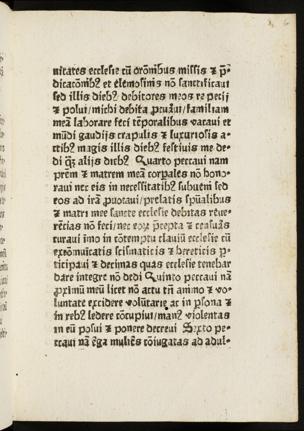 nitates ecclesie cū orōnibus missis ⁊ p̄-
dicatōnibꝰ et elemosinis nō sanctificaui
sed illis diebꝰ debitores meos repecij
⁊ posui/michi debita ꝓcuraui/familiam
meā laborare feci tēporalibus vacaui et
mūdi gaudijs crapulis ⁊ luxuriosis a-
ctibꝰ magis illis diebꝰ festiuis me de-
di qꝫ alijs diebꝰ Quarto peccaui nam
prēm ⁊ matrem meā corpales nō hono-
raui nec eis in necessitatibꝰ subuēni sed
eos ad irā ꝓuocaui/prelatis spūalibus
⁊ matri mee sancte ecclesie debitas reue-
rētias nō feci/nec eoꝝ p̄cepta ⁊ censuas
curaui īmo in cōtemptu clauiū ecclesie cū
excōmuicatis scismaticis ⁊ hereticis p-
ticipaui ⁊ decimas quas ecclesie tenebar
dare integre nō dedi Quinto peccaui nā
ꝓximū meū licet nō actu tn̄ animo ⁊ vo-
luntate excidere volūtarie ac in psona ⁊
in rebꝰ ledere cōcupiui/manꝰ violentas
in eū posui ⁊ ponere decreui Sexto pe-
ccaui nā ēga mulieēs cōiugatas ad adul-